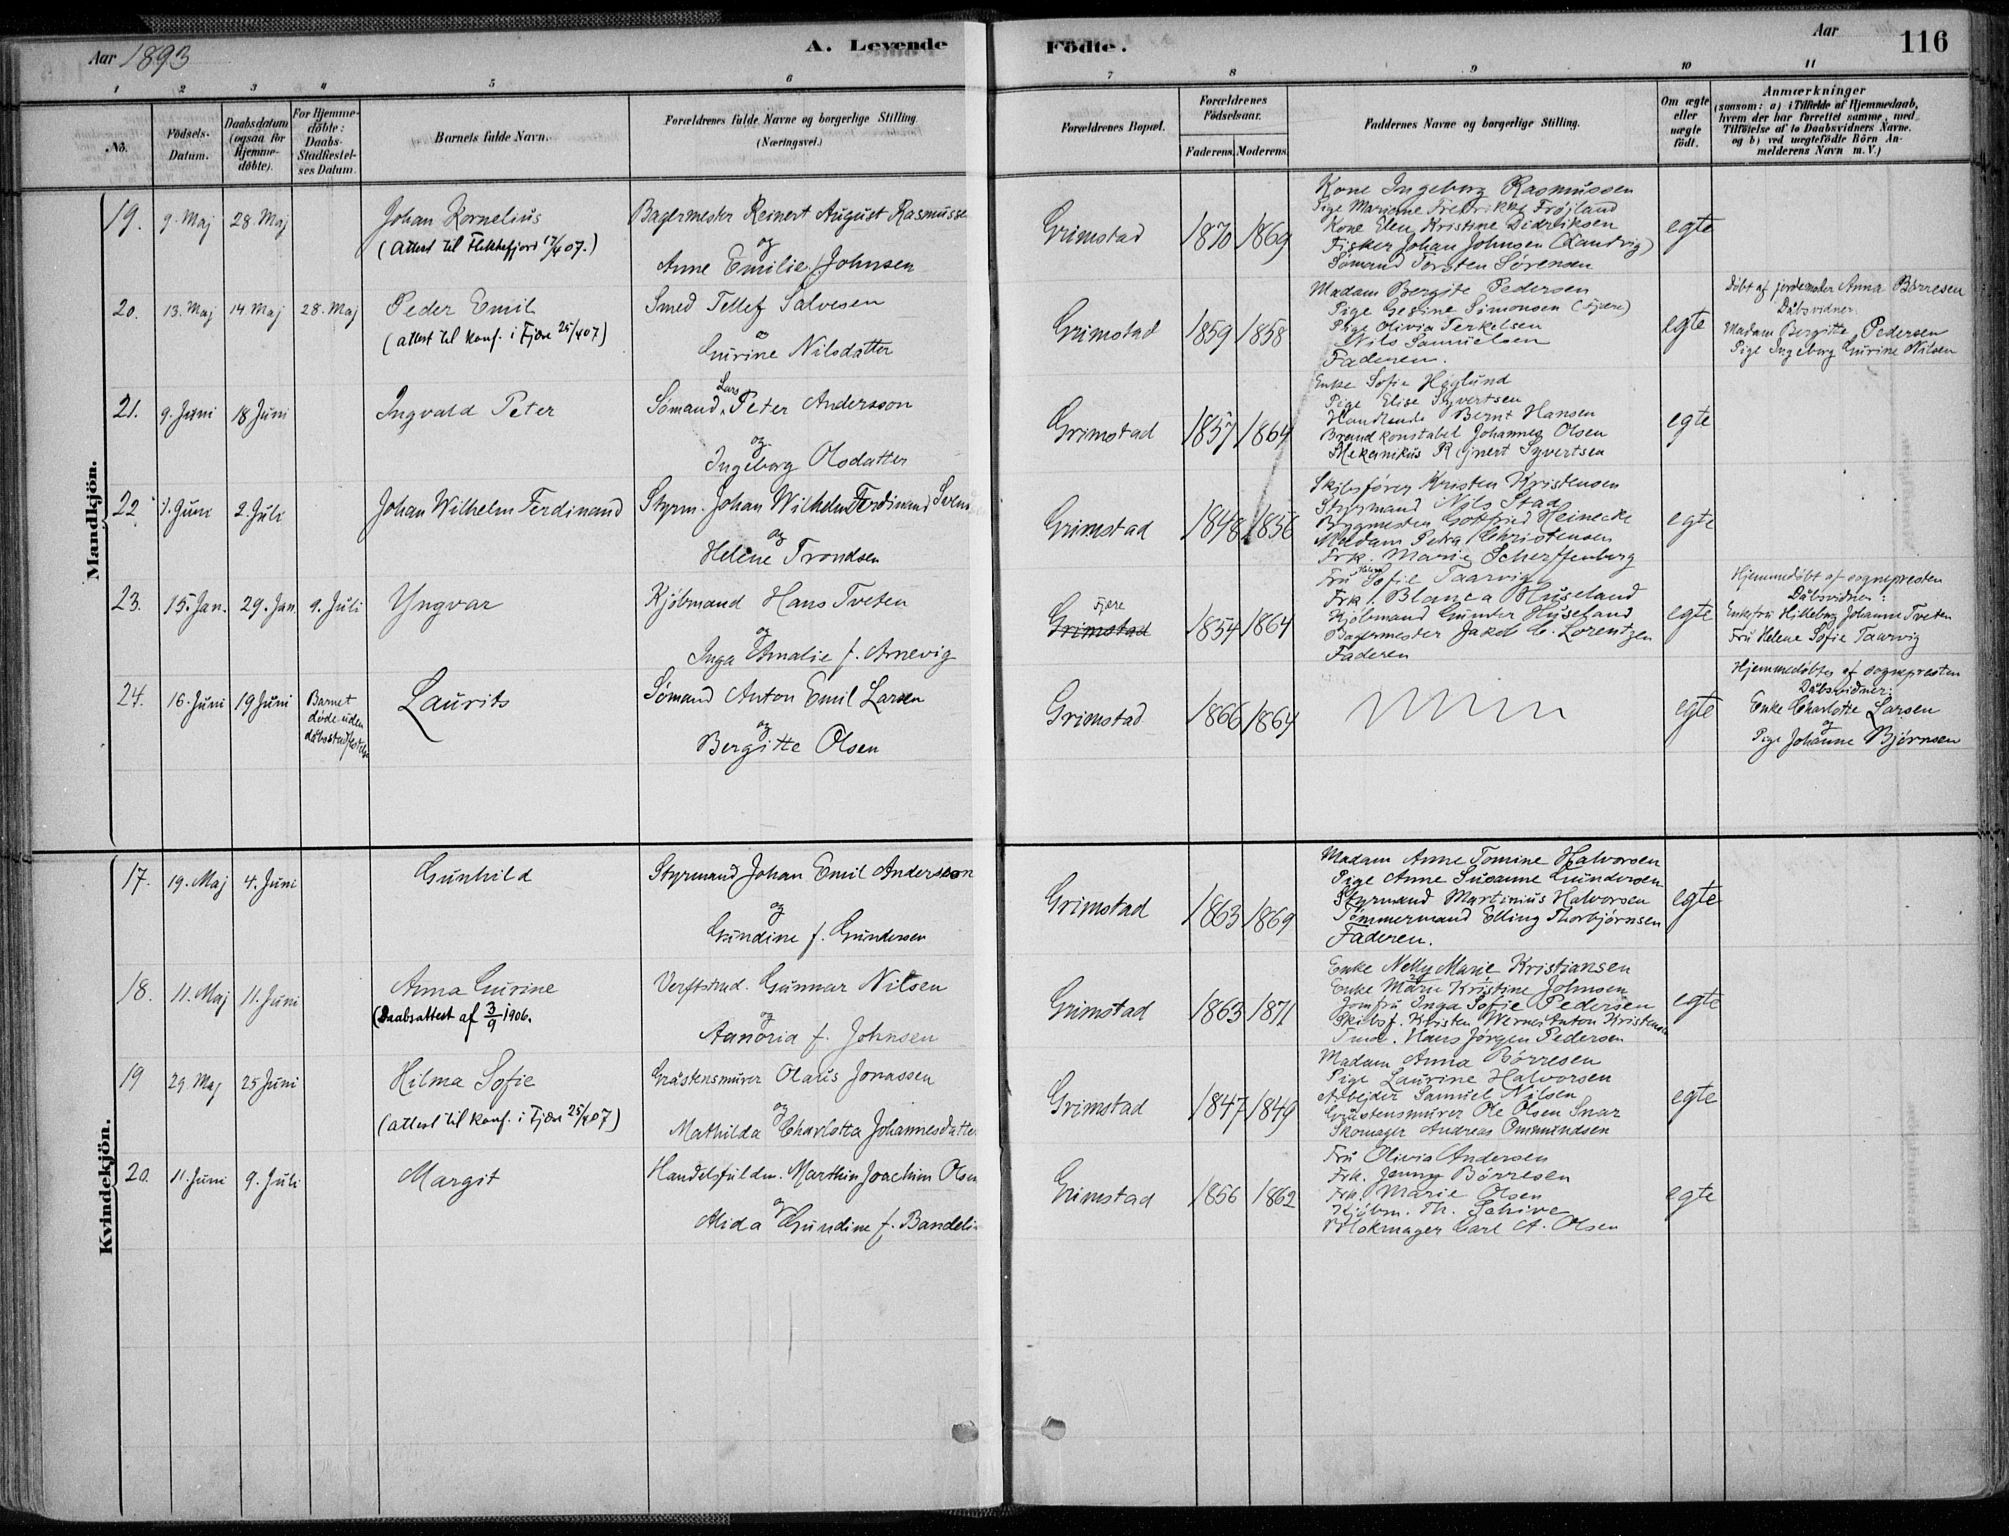 Aar 1893
A. Levende Födte.
Aar
116
1 2 3 4 5 6 7 8 9 10 11
No.
Födsels-Datum.
Daabsdatum (ogsaa for Hjemmedöbte).
For Hjemmedöbte: Daabs-Stadfæstelses Datum.
Barnets fulde Navn.
Forældrenes fulde Navne og borgerlige Stilling. (Næringsvei.)
Forældrenes Bopæl.
Forældrenes Födselsaar.
Faderens. Moderens.
Faddernes Navne og borgerlige Stilling.
Om ægte eller uægte födt.
Anmærkninger
(saasom: a) i Tilfælde af Hjemmedaab, hvem der har forrettet samme, med Tilföielse af to Daabsvidners Navne, og b) ved uægtefödte Börn Anmelderens Navn m. V.)
Mandkjön.
19. 9. Maj 28. Maj
Johan Kornelius
(Attest til Flekkefjord 17/4 07.)
Bagermester Reinert August Rasmusse
og
Anne Emilie Johnsen
Grimstad 1870 1869
Kone Ingeborg Rasmussen
Pige Mariane Fredrikke Frøjland
Kone Elen Kristine Didriksen
Fisker Johan Johnsen (Landvig)
Sømand Torsten Sørensen
egte
20. 13. Maj 14 Maj 28. Maj
Peder Emil
(attest til konf. i Fjære 25/4 07)
Smed Tellef Salvesen
o
Gurine Nilsdatter
Grimstad 1859 1858
Madam Bergite Pedersen
Pige Gesine Simonsen (Fjære)
Pige Olivia Terkelsen
Nils Samuelsen
Faderen.
egte
Døbt af jordemoder Anna Børresen
Dåbsvidner:
Madam Bergitte Pedersen
Pige Ingeborg Gurine Nilsen
21. 9. Juni 18 Juni
Ingvald Peter
Sømand Lars Peter Andersson
og
Ingeborg Olsdatter
Grimstad 1857 1864
Enke Sofie Høglund
Pige Elise Syvertsen
Handlende Bernt Hansen
Brandkonstabel Johannes Olsen
Mekanikus Rejnert Syvertsen
egte
22. 1. Juni 2. Juli
Johan Wilhelm Ferdinand
Styrm. Johan Wilhelm Ferdinand
og
Helene Trondsen
Grimstad 1848 1856
Skibsfører Kristen Kristensen
Styrmand Nils Stads
Bygmester Gottfried Heinecke
Madam Petra Christensen
Frk. Marie Scherffenberg
egte
23. 15. Jan. 29. Jan 9. Juli
Yngvar
Kjøbmand Hans Tveten
og
Inga Amalie f. Arnevig
Fjære
Grimstad 1854 1864
Fru Helene Sofie Taarvig
Frk. Blanca Huseland
Kjøbmand Gunder Huseland
Bagermester Jakob C. Lorentzen
Faderen
egte
Hjemmedøbt af sognepresten
Dåbsvidner:
Enkefru Hilleborg Johanne Tveten
Fru Helene Sofie Taarvig
24. 16. Juni 19 Juni
Barnet
døde uden
dåbsstadfæstelse
Laurits
Sømand Anton Emil Larsen
og
Bergitte Olsen
Grimstad 1866 1864
egte
Hjemmedøbtes af sognepresten
Dåbsvidner:
Enke Charlotte Larsen
og
Pige Johanne Bjørnsen
Kvindekjön.
17. 19. Maj 4. Juni
Gunhild
Styrmand Johan Emil Andersson
og
Gundine f. Gundersen
Grimstad 1863 1869
Madam Anne Tomine Halvorsen
Pige Anne Susanne Gundersen
Styrmand Martinius Halvorsen
Tømmermand Elling Thorbjørnsen
Faderen.
egte
18. 11. Maj 11. Juni
Anna Gurine
(Daabsattest af 3/9 1906.
Verftsarb. Gunnar Nilsen
og
Aanoria f. Johnsen
Grimstad 1863 1871
Enke Nelly Marie Kristjansen
Enke Marie Kristine Johnsen
Jomfru Inga Sofie Pedersen
Skibsf. Kristen Werner Anton Kristensen
Tmd. Hans Jørgen Pedersen
egte
19 29. Maj 25 Juni
Hilma Sofie
(attest til konf. i Fjære 25/4 07)
Gråstensmurer Olaus Jonassen
og
Mathilda Charlotta Johannesdatter
Grimstad 1847 1849
Madam Anna Børresen
Pige Laurine Halvorsen
Arbejder Samuel Nilsen
Gråstensmurer Ole Olsen Snar
Skomager Andreas Ommundsen
egte
20. 11. Juni 9. Juli
Margit
Handelsfuldm. Marthin Joachim Olsen
og
Alida Gundine f. Bandeli
Grimstad 1856 1862
Fru Olivia Andersen
Frk. Jenny Børresen
Frk. Marie Olsen
Kjøbm. Th. Schive
Blokmager Carl A. Olsen
egte